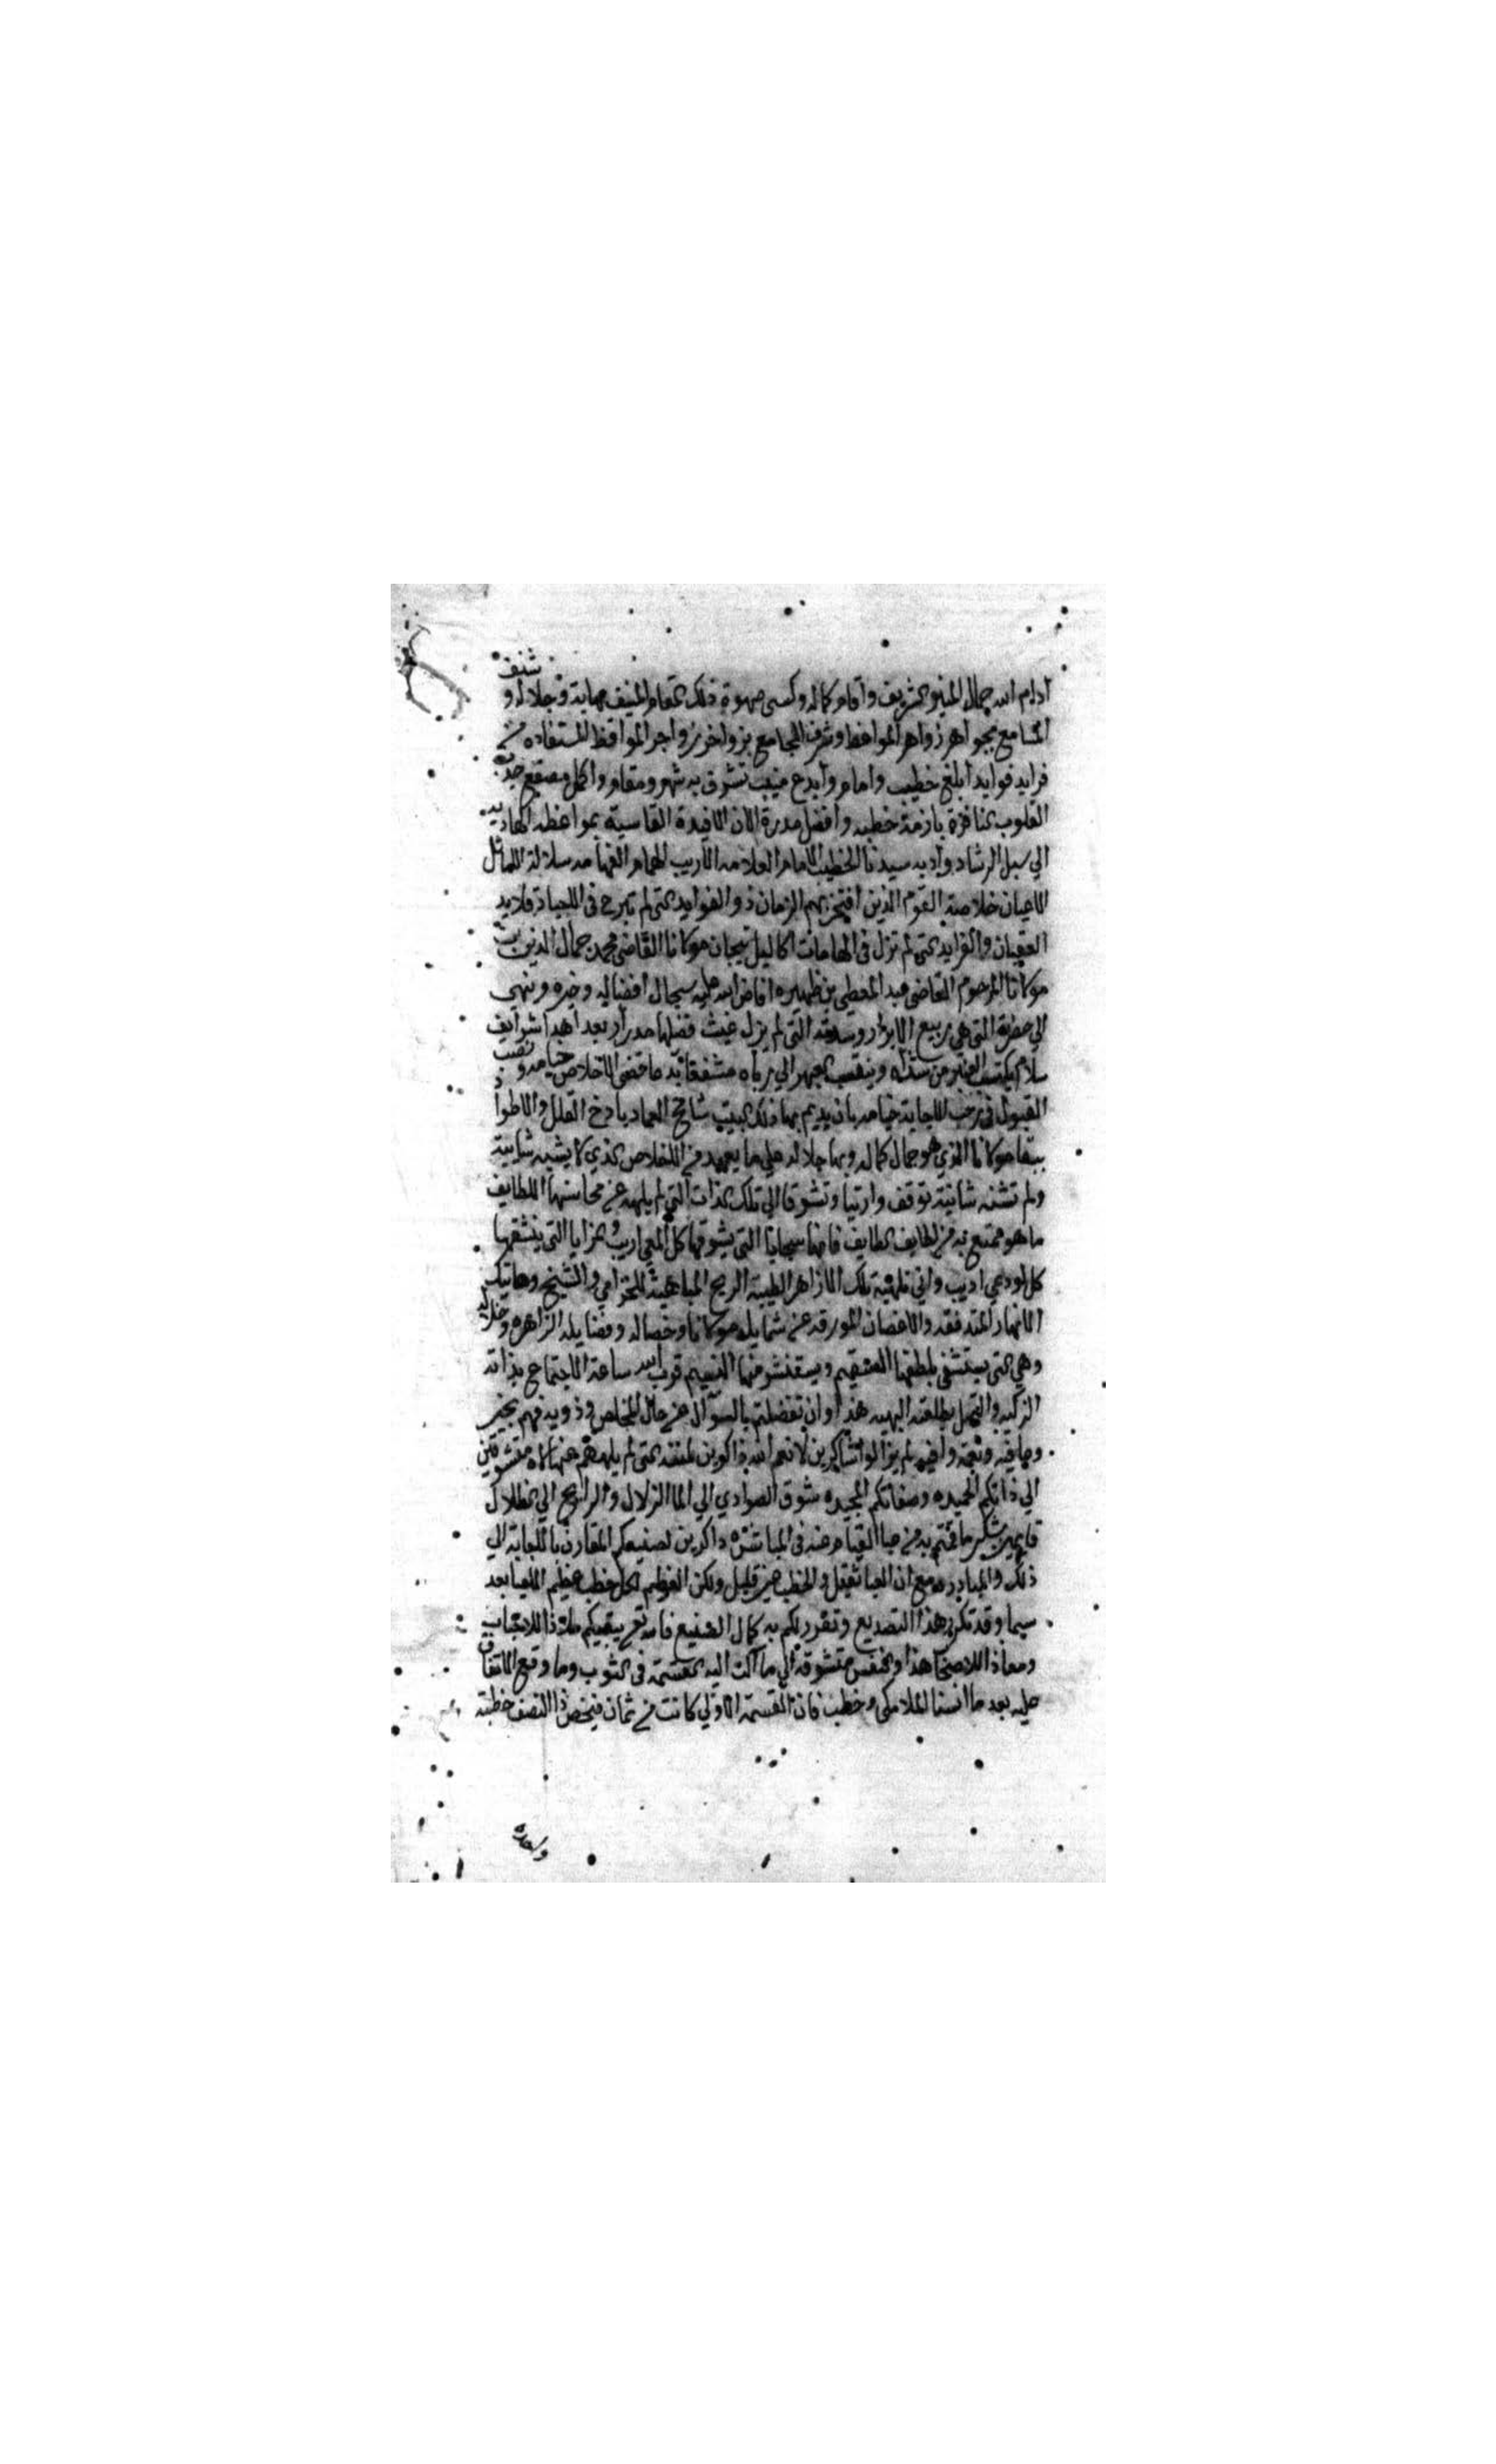 ادام الله جمال المنبر الشريف واقام كماله وكسى صهوة ذلك المقام المنيف مهابة وجلاله وشنف
المسامع بجواهر زواهر المواعظ وشرف المجامع بزواخر زواجر المواقظ المستفاده من
فرايد فوايد أبلغ خطيب وامام وأبدع منيب تشرق به شهر ومقام وأكمل مصقع جذب
القلوب النافرة بازمة خطبه وأفضل مدرة الان الافيدة القاسية بمواعظه الهاديه
الي سبل الرشاد وادبه سيدنا الخطيب الامام العلامه الأريب الهمام الفهامه سلالة الاماثل
الاعيان خلاصة القوم الذين افتخر بهم الزمان ذو الفوايد التي لم تبرح في اللجياد قلايد
العقيان والفرايد التي لم تزل في الهامات اكاليل تيجان مولانا القاضي محمد جمال الدين بن
مولانا المرحوم القاضي عبد المعطي بن ظهيره افاض الله عليه سجال أفضاليه وخيره وينهي
الي حضرته التي هي ربيع الابرار وسدته التي لم يزل غيث فضلها مدرار بعد اهدا شرايف
سلام يكتسب العنبر من شذاه وينتسب العبهر الي رياه مشفقا بد ما قضى الاخلاص ختامه ونصب
القبول في رحب الاجابة خيامه بان يديم بها ذلك البيت شامخ العماد باذخ القلل والاطواد
ببقا مولانا الذي هو جمال كماله وبها جلاله علي ما يعهد من الاخلاص الذي لا يشبه شايبة
ولم تشنه شانية توقف وارتيا وتشوقا الي تلك الذات التي لم يلهه عن محاسنها اللطايف
ما هو ممتع به من لطايف الطايف فانها سجايا التي يشوقها كل المعي اريب والمزايا التي ينشقها
كل لوذعي اديب واني تلهيه تلك الازاهر الطيبة الريح المباهية للخزامي والشيح وهاتيك
الانهار المتدفقه والاغصان المورقه عن شمايل مولانا وخصاله وفضايله الزاهره وخلاله
وهي التي يستشفي بلطفها السقيم ويستنشر منها النسيم قرب الله ساعة الاجتماع بذاته
الزكيه والتملي بطلعته البهيه هذا وان تفضلتم بالسوآل عن حال المخلص وذويه فهم بخير
وعافيه ونعمه وافيه لم يزالوا شاكرين لانعم الله ذاكرين لمننه التي لم يلههم عنها لاه متشوقين
الي ذاتكم الحميده وصفاتكم المجيده شوق الصوادي الي الماالزلال والرايح الي الظلال
قايمين بشكر ما قمتم به من عبا القيام عنه في المباشره ذاكرين لصنيعكم المقارن بالاجابة الي
ذلك والمبادره مع ان العبا ثقيل والخطب غير قليل ولكن العظيم لكل خطب عظيم اللعبا بعد
سيما وقد تكرر هذا التصديع وتقرر لكم به كمال الصنيع فالله تعالى يبقيكم ملاذا للاحباب
ومعاذا للاصحاب هذا والنفس متشوقة الي ما آلت اليه القسمة في النوب وما وقع الاتفاق
عليه بعد ما انسنا الملا مكي وخطب فان القسمة الاولي كانت من ثمان فيخص ذا النصف خطبته
واحدة